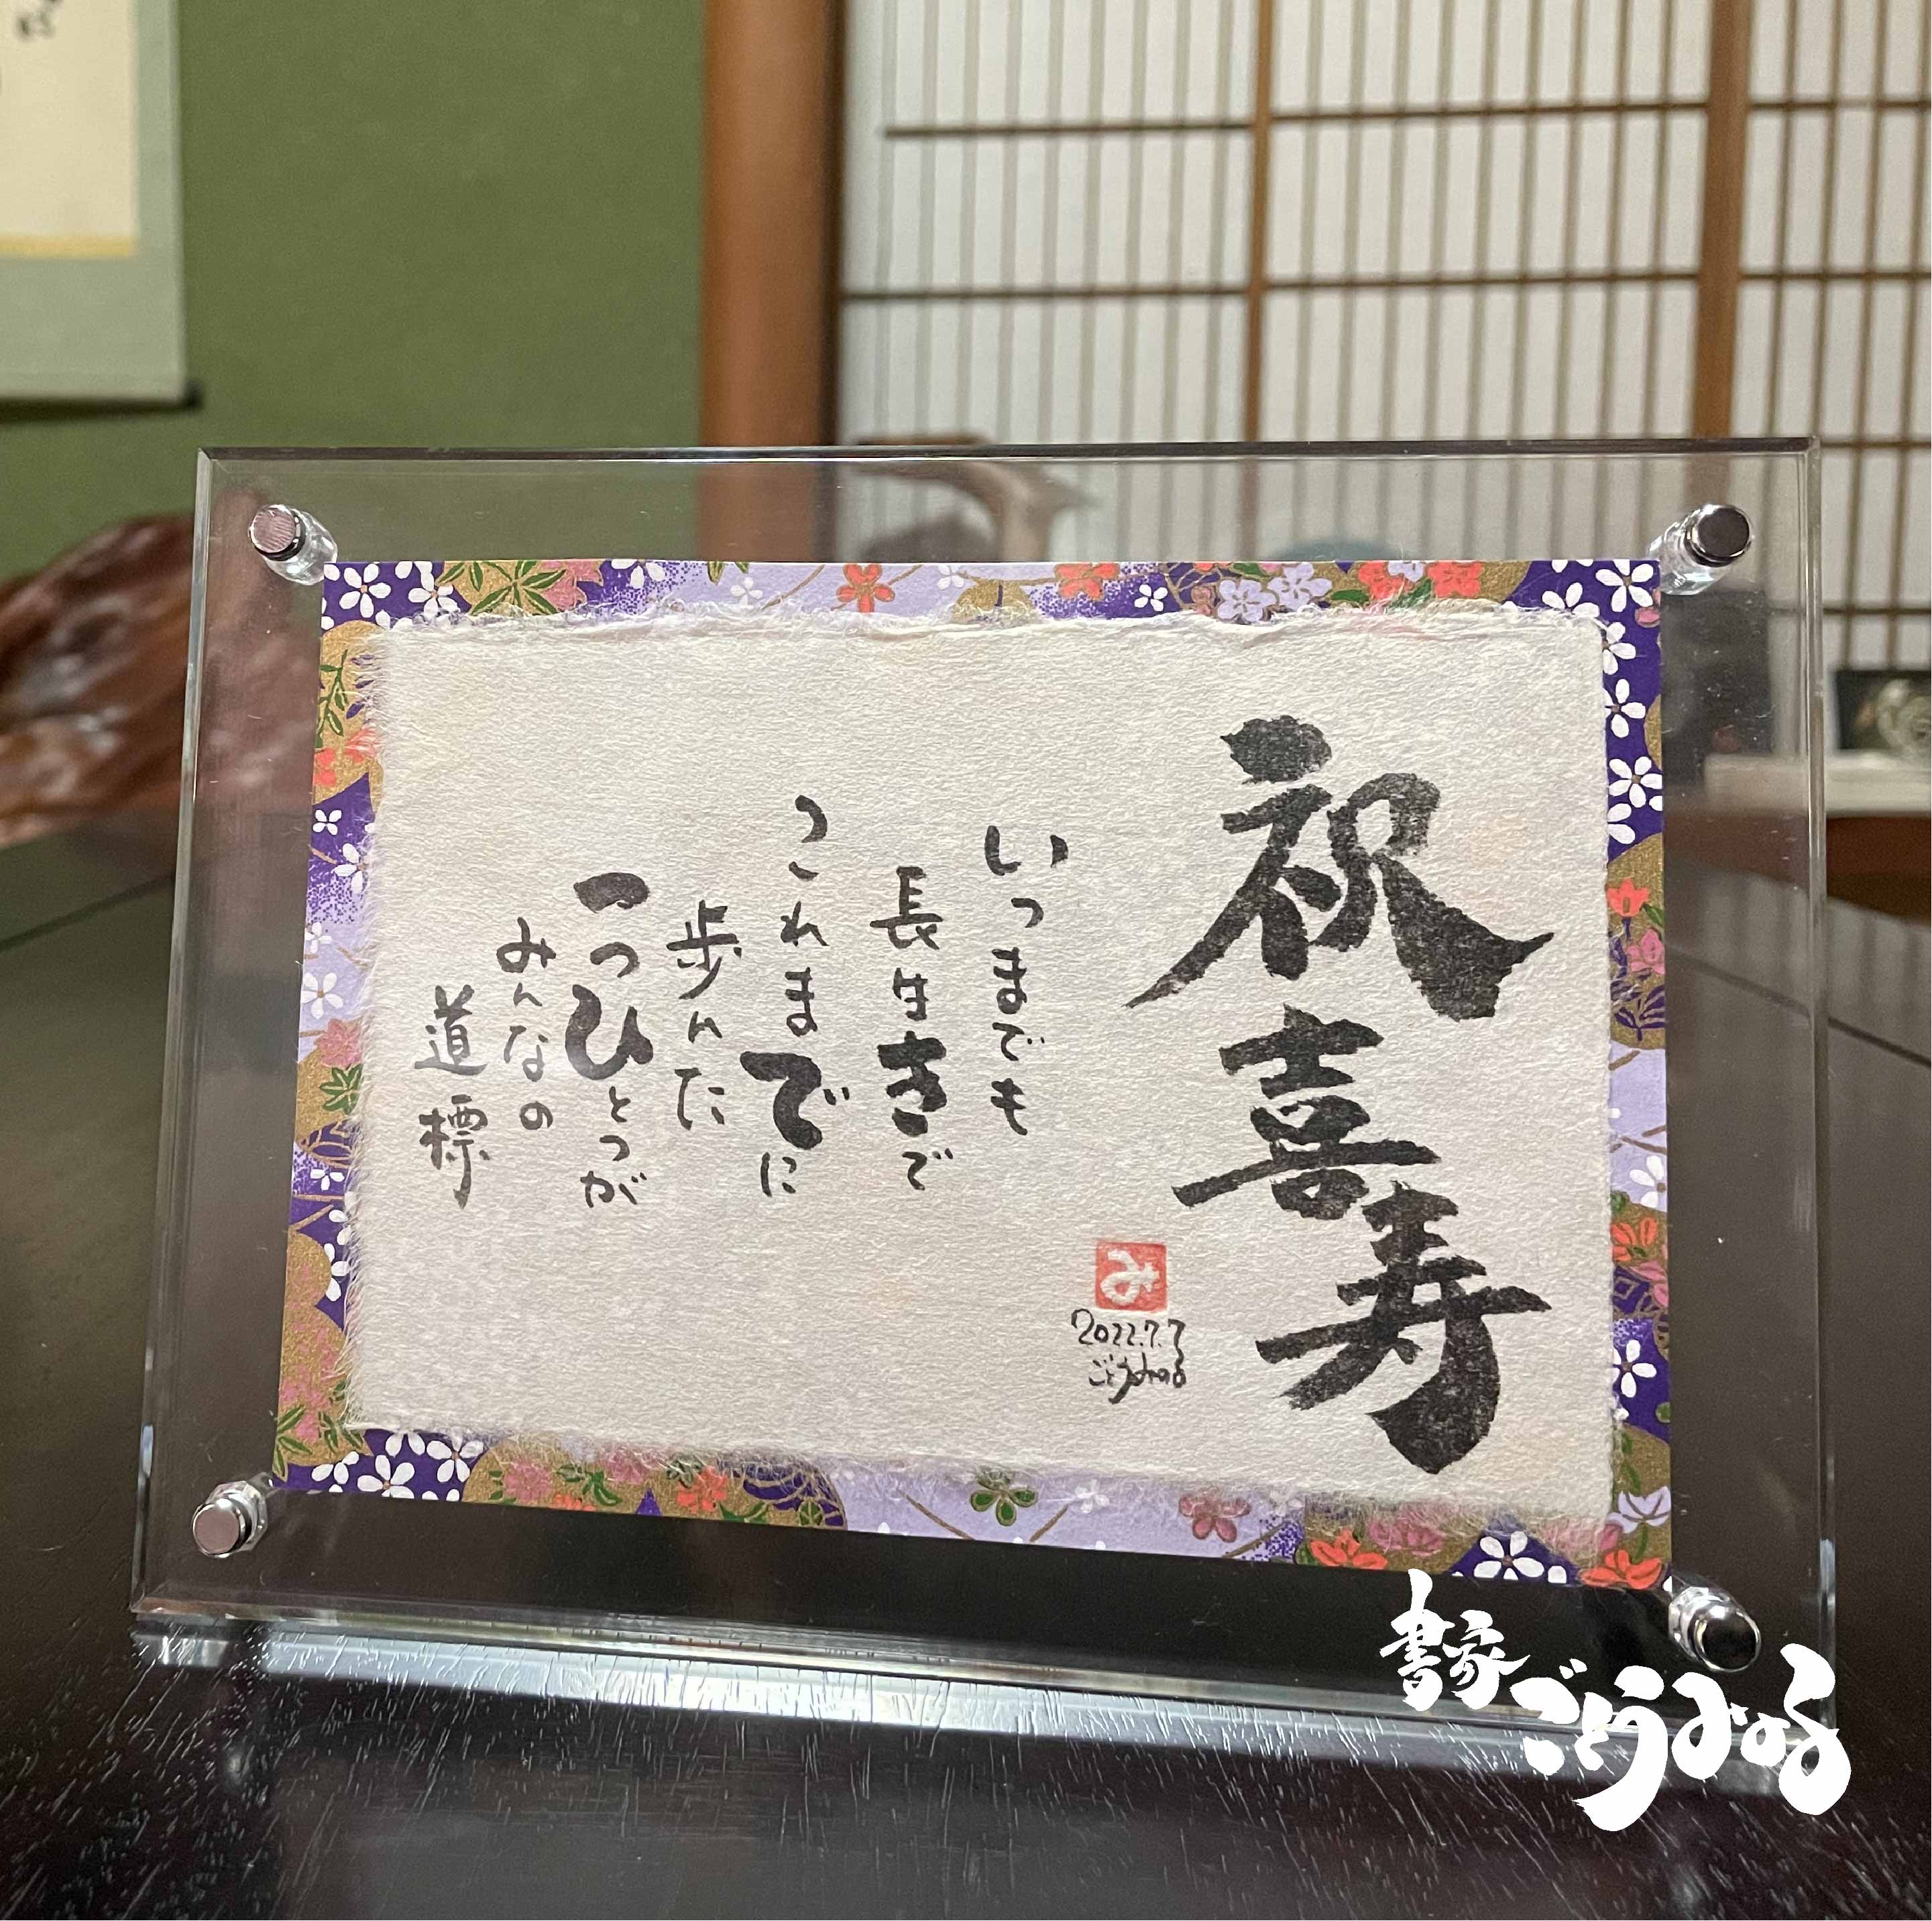 祝喜寿
いつまでも
長生きで
これまでに
歩んた
一つひとつが
みんなの
道標
お
2022.7.7
ごとうみのる
書家
ごとうみのる